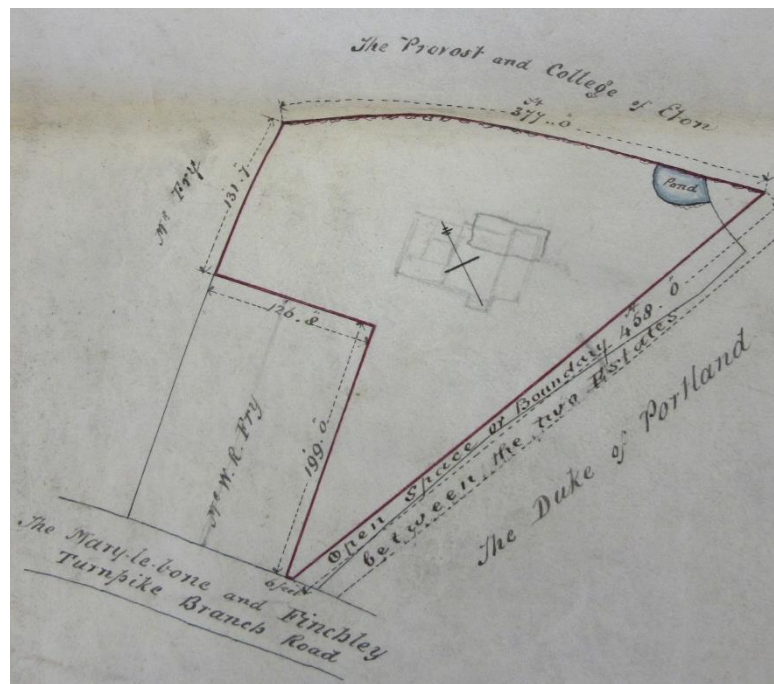 The Provost and College of Eton
ft
377..0
Pond
Mr Fry
131.7
126.8
199.0
Mr W. R. Fry
ft
458.0
Open Space or Boundary
between the two Estates
The Duke of Portland
6 feet
The Mary-le-bone and Finchley
Turnpike Branch Road